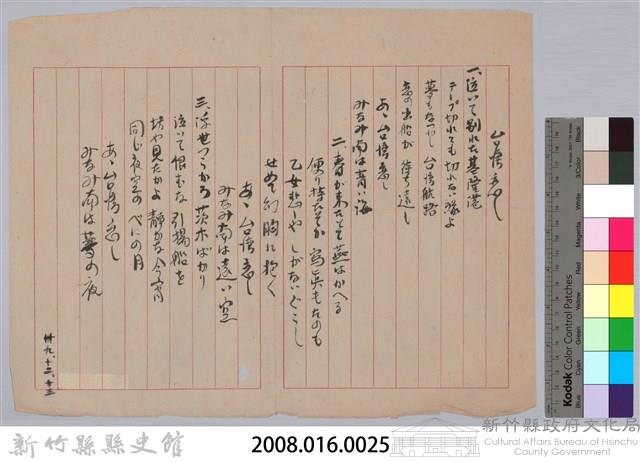 台湾恋し
一、泣いて別れた基隆港
テープ切れても切れない縁よ
夢もなつかし 台湾航路
春の出船が 待ち遠し
あゝ台湾恋し
みなみ南は青い海
二、春が来たとて燕はかへる
便り持たそか 写真もたのも
乙女悲しや しがない
せめて 胸に抱く
あゝ台湾恋し
みなみ南は遠い空
三、浮世つゝかる茨木ばかり
泣いて恨むな 引揚船を
坊や見たかよ 静な今宵
同じ夜空の べにの月
あゝ台湾恋し
みなみ南は夢の夜
卅九、十二、十三
新竹縣縣史館
2008.016.0025
新竹縣政府文化局
Cultural Affairs Bureau of Hsinchu
County Government
Kodak Color Control Patches
Blue
Cyan
Green
Yellow
Red
Magenta
White
3/Color
Black